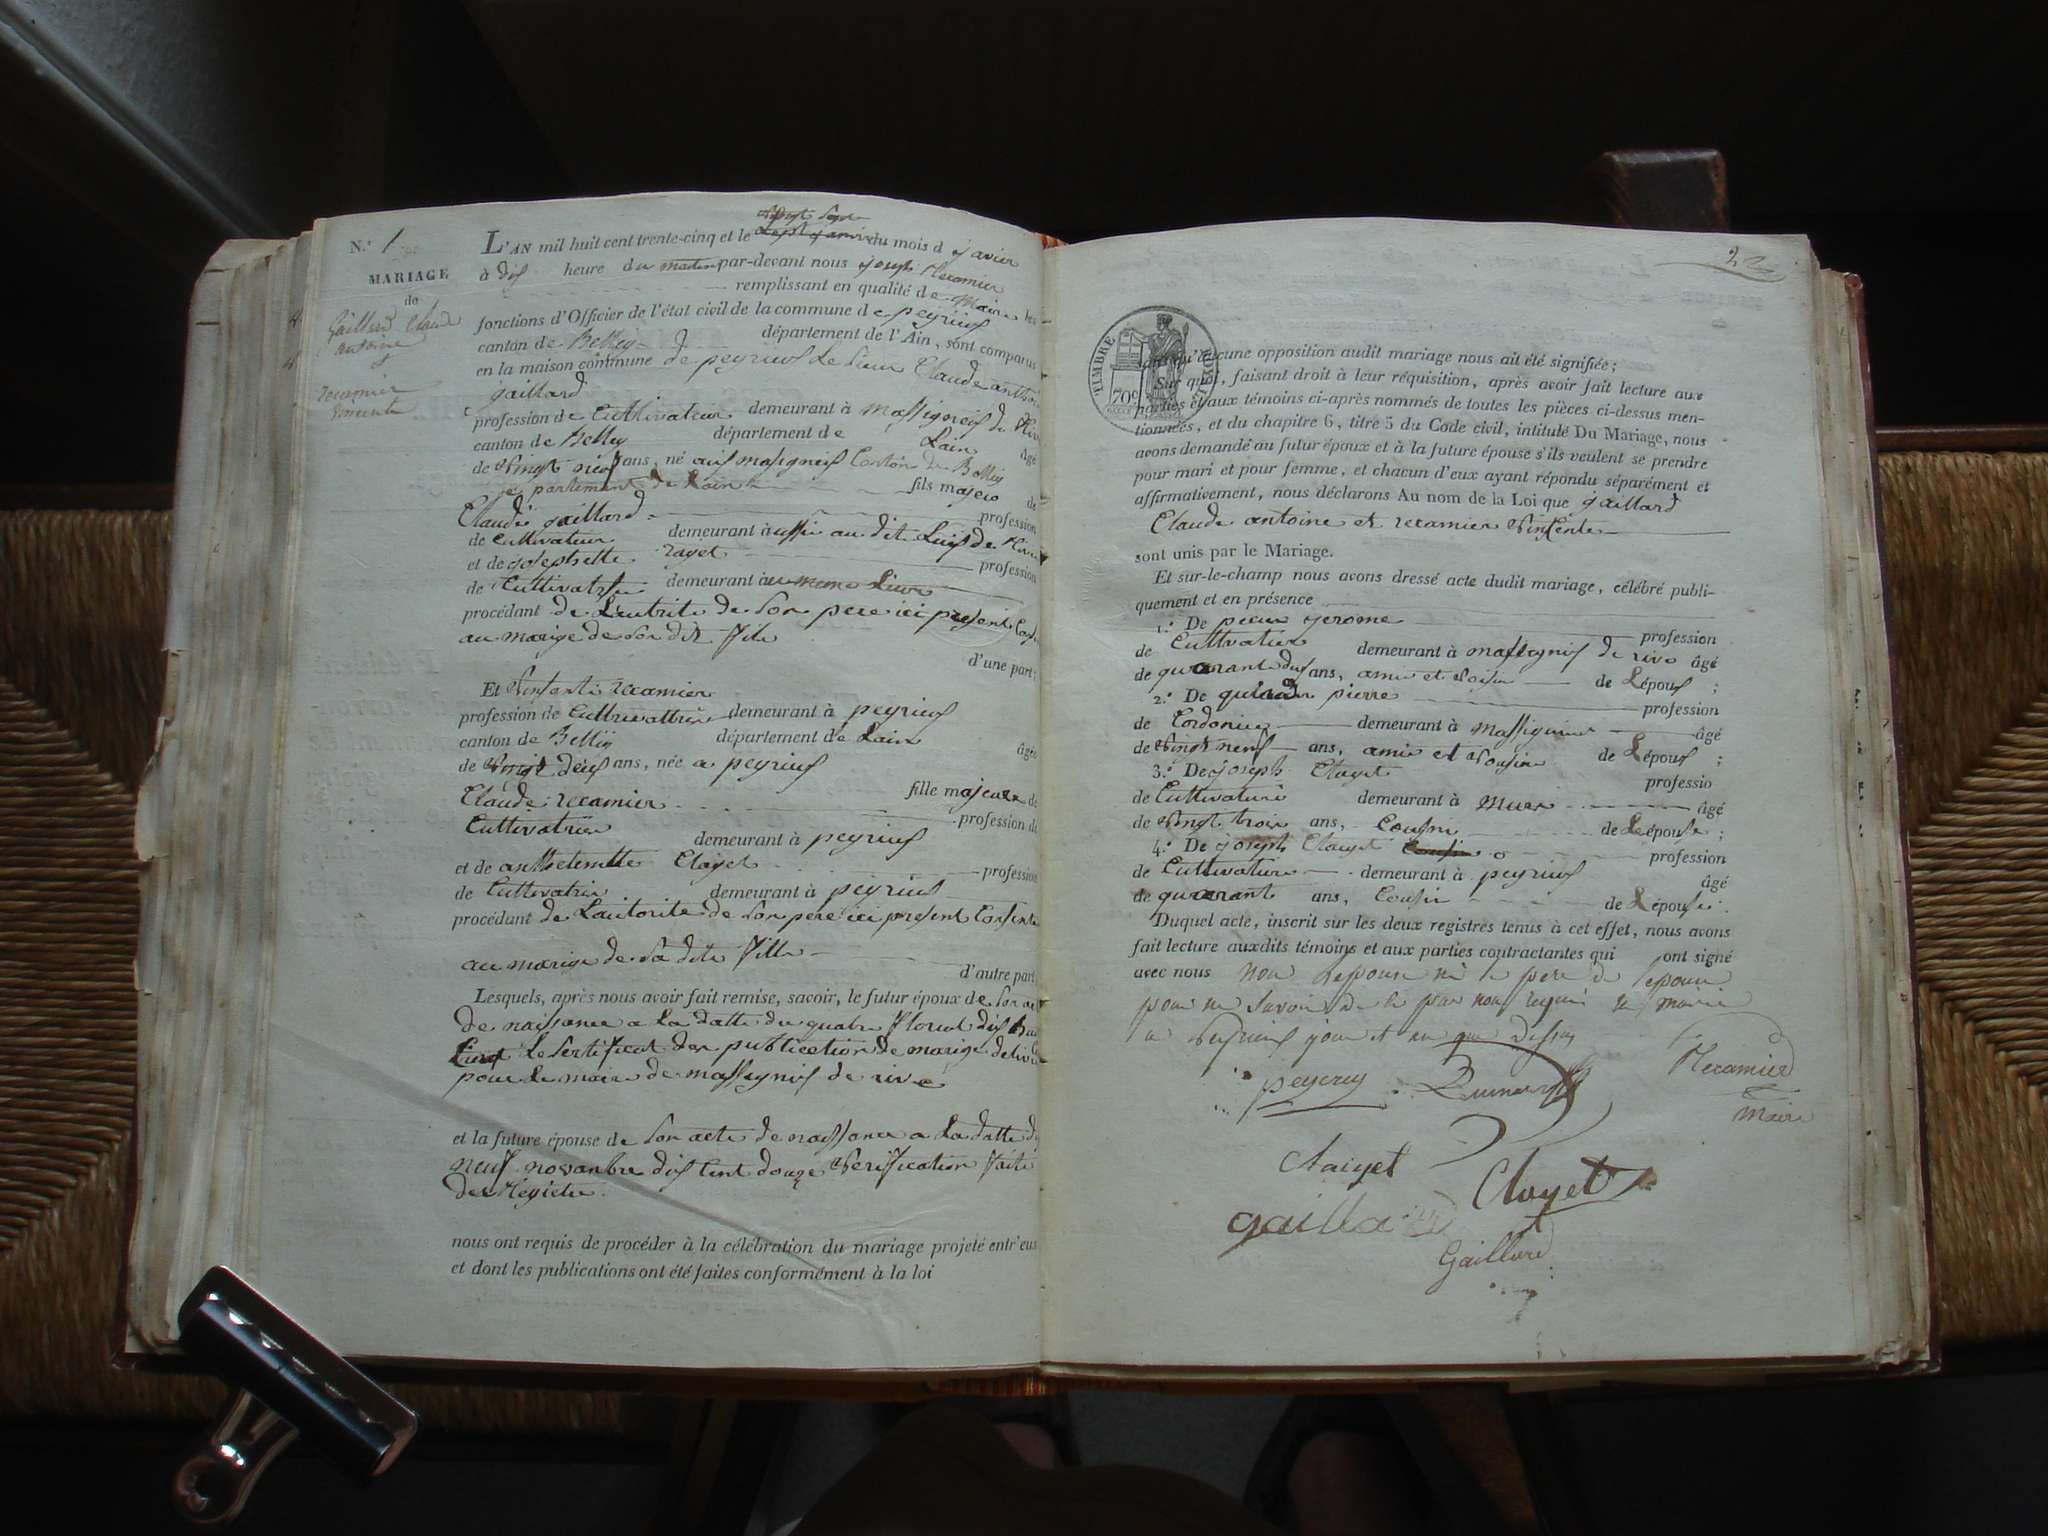 N.º 1
MARIAGE
de
Gaillard Claude
antoine
et
recamier
vincente
vingt sept
L'AN mil huit cent trente-cinq et le du mois d javier
à dix heure du matin par-devant nous joseph Recamier
remplissant en qualité de Maire les
fonctions d'Officier de l'état civil de la commune de peyrieux
canton de Belley département de l'Ain, sont comparus
en la maison commune de peyrieux le sieur Claude anthoi
gaillard
profession de Cultivateur demeurant à massignieux de Rive
canton de Belley département de Lain âgé
de vingt neuf ans, né aus massignieux Canton de Belley
de partement de Lain fils majeur de
Claude gaillard profession
de Cultivateur demeurant à aussi au dit Luis de Rive
et de josephette rayet profession
de Cultivatrise demeurant à au meme Lieus
procédant de Lautorite de son pere ici present Cons
au marige de son dit fils
d'une part;
Et Vinsente recamier
profession de Cultrivattrise demeurant à peyrieus
canton de Belley département de Lain âgée
de vingt deux ans, née a peyrieus
fille majeure de
Claude recamier profession de
Cultivatrise
demeurant à peyrieus
et de Clayet profession
de Cultivatrise demeurant à peyrieus
procédant de Lautorite de son pere ici present Consente
au marige de sa dite fille
d'autre part
Lesquels, après nous avoir fait remise, savoir, le futur époux de son ac
de naissance a La datte du quatre floreal dix huit
Cinq Le sertificat der publication de marige delivre
pour Le maire de massegnieux de rive
et la future épouse de son acte de naissance a La datte du
neuf novanbre dix Cent douze verification faite
der Registre
nous ont requis de procéder à la célébration du mariage projeté entr'eux
et dont les publications ont été faites conformément à la loi
2
TIMBRE ROYAL
70c
qu'aucune opposition audit mariage nous ait été signifiée;
Sur quoi, faisant droit à leur réquisition, après avoir fait lecture aux
parties et aux témoins ci-après nommés de toutes les pièces ci-dessus men-
tionnées, et du chapitre 6, titre 5 du Code civil, intitulé Du Mariage, nous
avons demandé au futur époux et à la future épouse s'ils veulent se prendre
pour mari et pour femme, et chacun d'eux ayant répondu séparément et
affirmativement, nous déclarons Au nom de la Loi que gaillard
Claude antoine et recamier Vinsente
sont unis par le Mariage.
Et sur-le-champ nous avons dressé acte dudit mariage, célébré publi-
quement et en présence
1.º De jerome profession
de Cultivateur demeurant à massegnieux de rive âgé
de quarante deux ans, amis et voisin de Lépoux;
2.º De pierre profession
de Cordonier demeurant à massignieux âgé
de vingt neuf ans, amie et voisin de Lépoux;
3.º De joseph Clayet professio
de Cultivature demeurant à Mure âgé
de vingt trois ans, Cousin de Lépouse;
4.º De joseph Clayet profession
de Cultivature demeurant à peyrieus âgé
de quarant ans, Cousin de Lépouse.
Duquel acte, inscrit sur les deux registres tenus à cet effet, nous avons
fait lecture auxdits témoins et aux parties contractantes qui ont signé
avec nous non Lepouse ni le pere de lepouse
pour ne savoir de le par nou requis a mairie
a Peyrieux jour et an que dessus
Recamier
maire
Claiyet
Clayet
gaillard
Gaillard